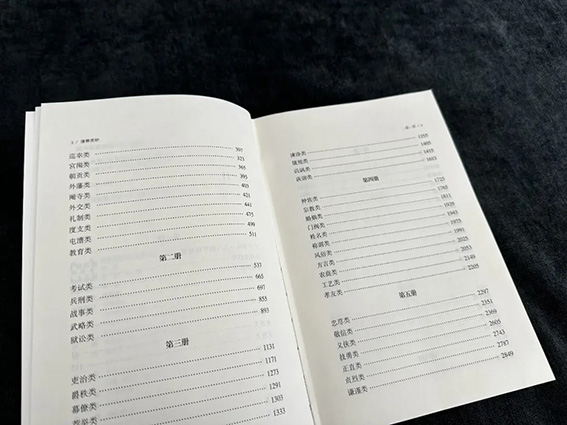 2 / 清稗类钞
巡幸类 307
宫闱类 323
朝贡类 365
外藩类 395
阉寺类 405
外交类 421
礼制类 441
度支类 475
屯漕类 499
教育类 511
第二册
考试类 537
兵刑类 665
战事类 697
武略类 855
狱讼类 893
第三册
吏治类 1131
爵秩类 1171
幕僚类 1273
荐举类 1291
1333
1355
1405
讥讽类 1415
诙谐类 1603
第四册
种族类 1725
宗教类 1783
婚姻类 1811
门阀类 1929
姓名类 1943
称谓类 1975
风俗类 1991
方言类 2025
农商类 2053
工艺类 2149
孝友类 2205
第五册
忠荩类 2297
敬信类 2351
义侠类 2369
技勇类 2605
正直类 2743
贞烈类 2787
谦谨类 2849